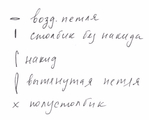 возд. петля
столбик без накида
накид
вытянутая петля
× полустолбик